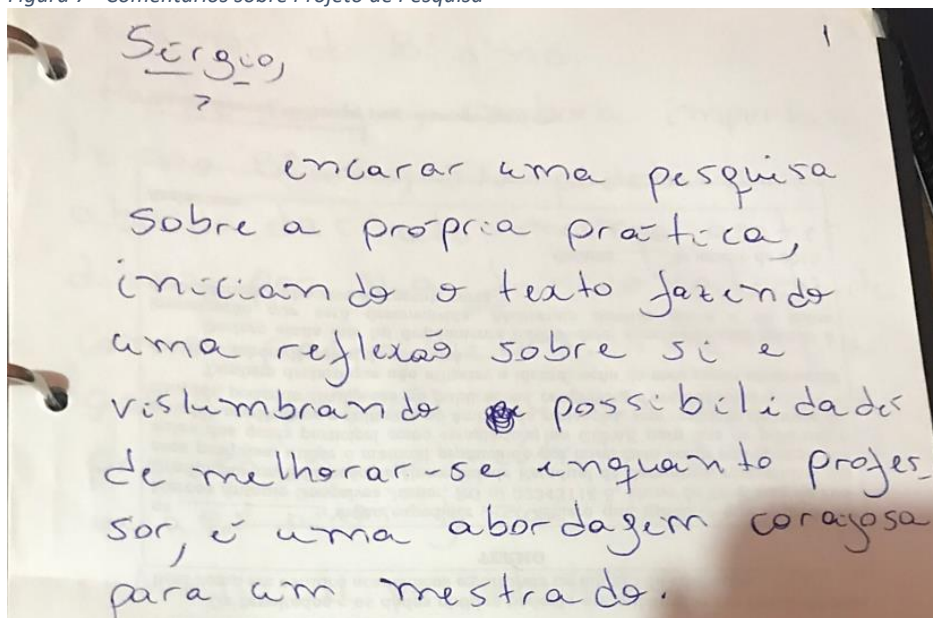 Figura 7 - Comentários sobre Projeto de Pesquisa
1
Sérgio,
encarar uma pesquisa
sobre a própria prática,
iniciando o texto fazendo
uma reflexão sobre si e
vislumbrando possibilidades
de melhorar-se enquanto profes-
sor, é uma abordagem corajosa
para um mestrado.